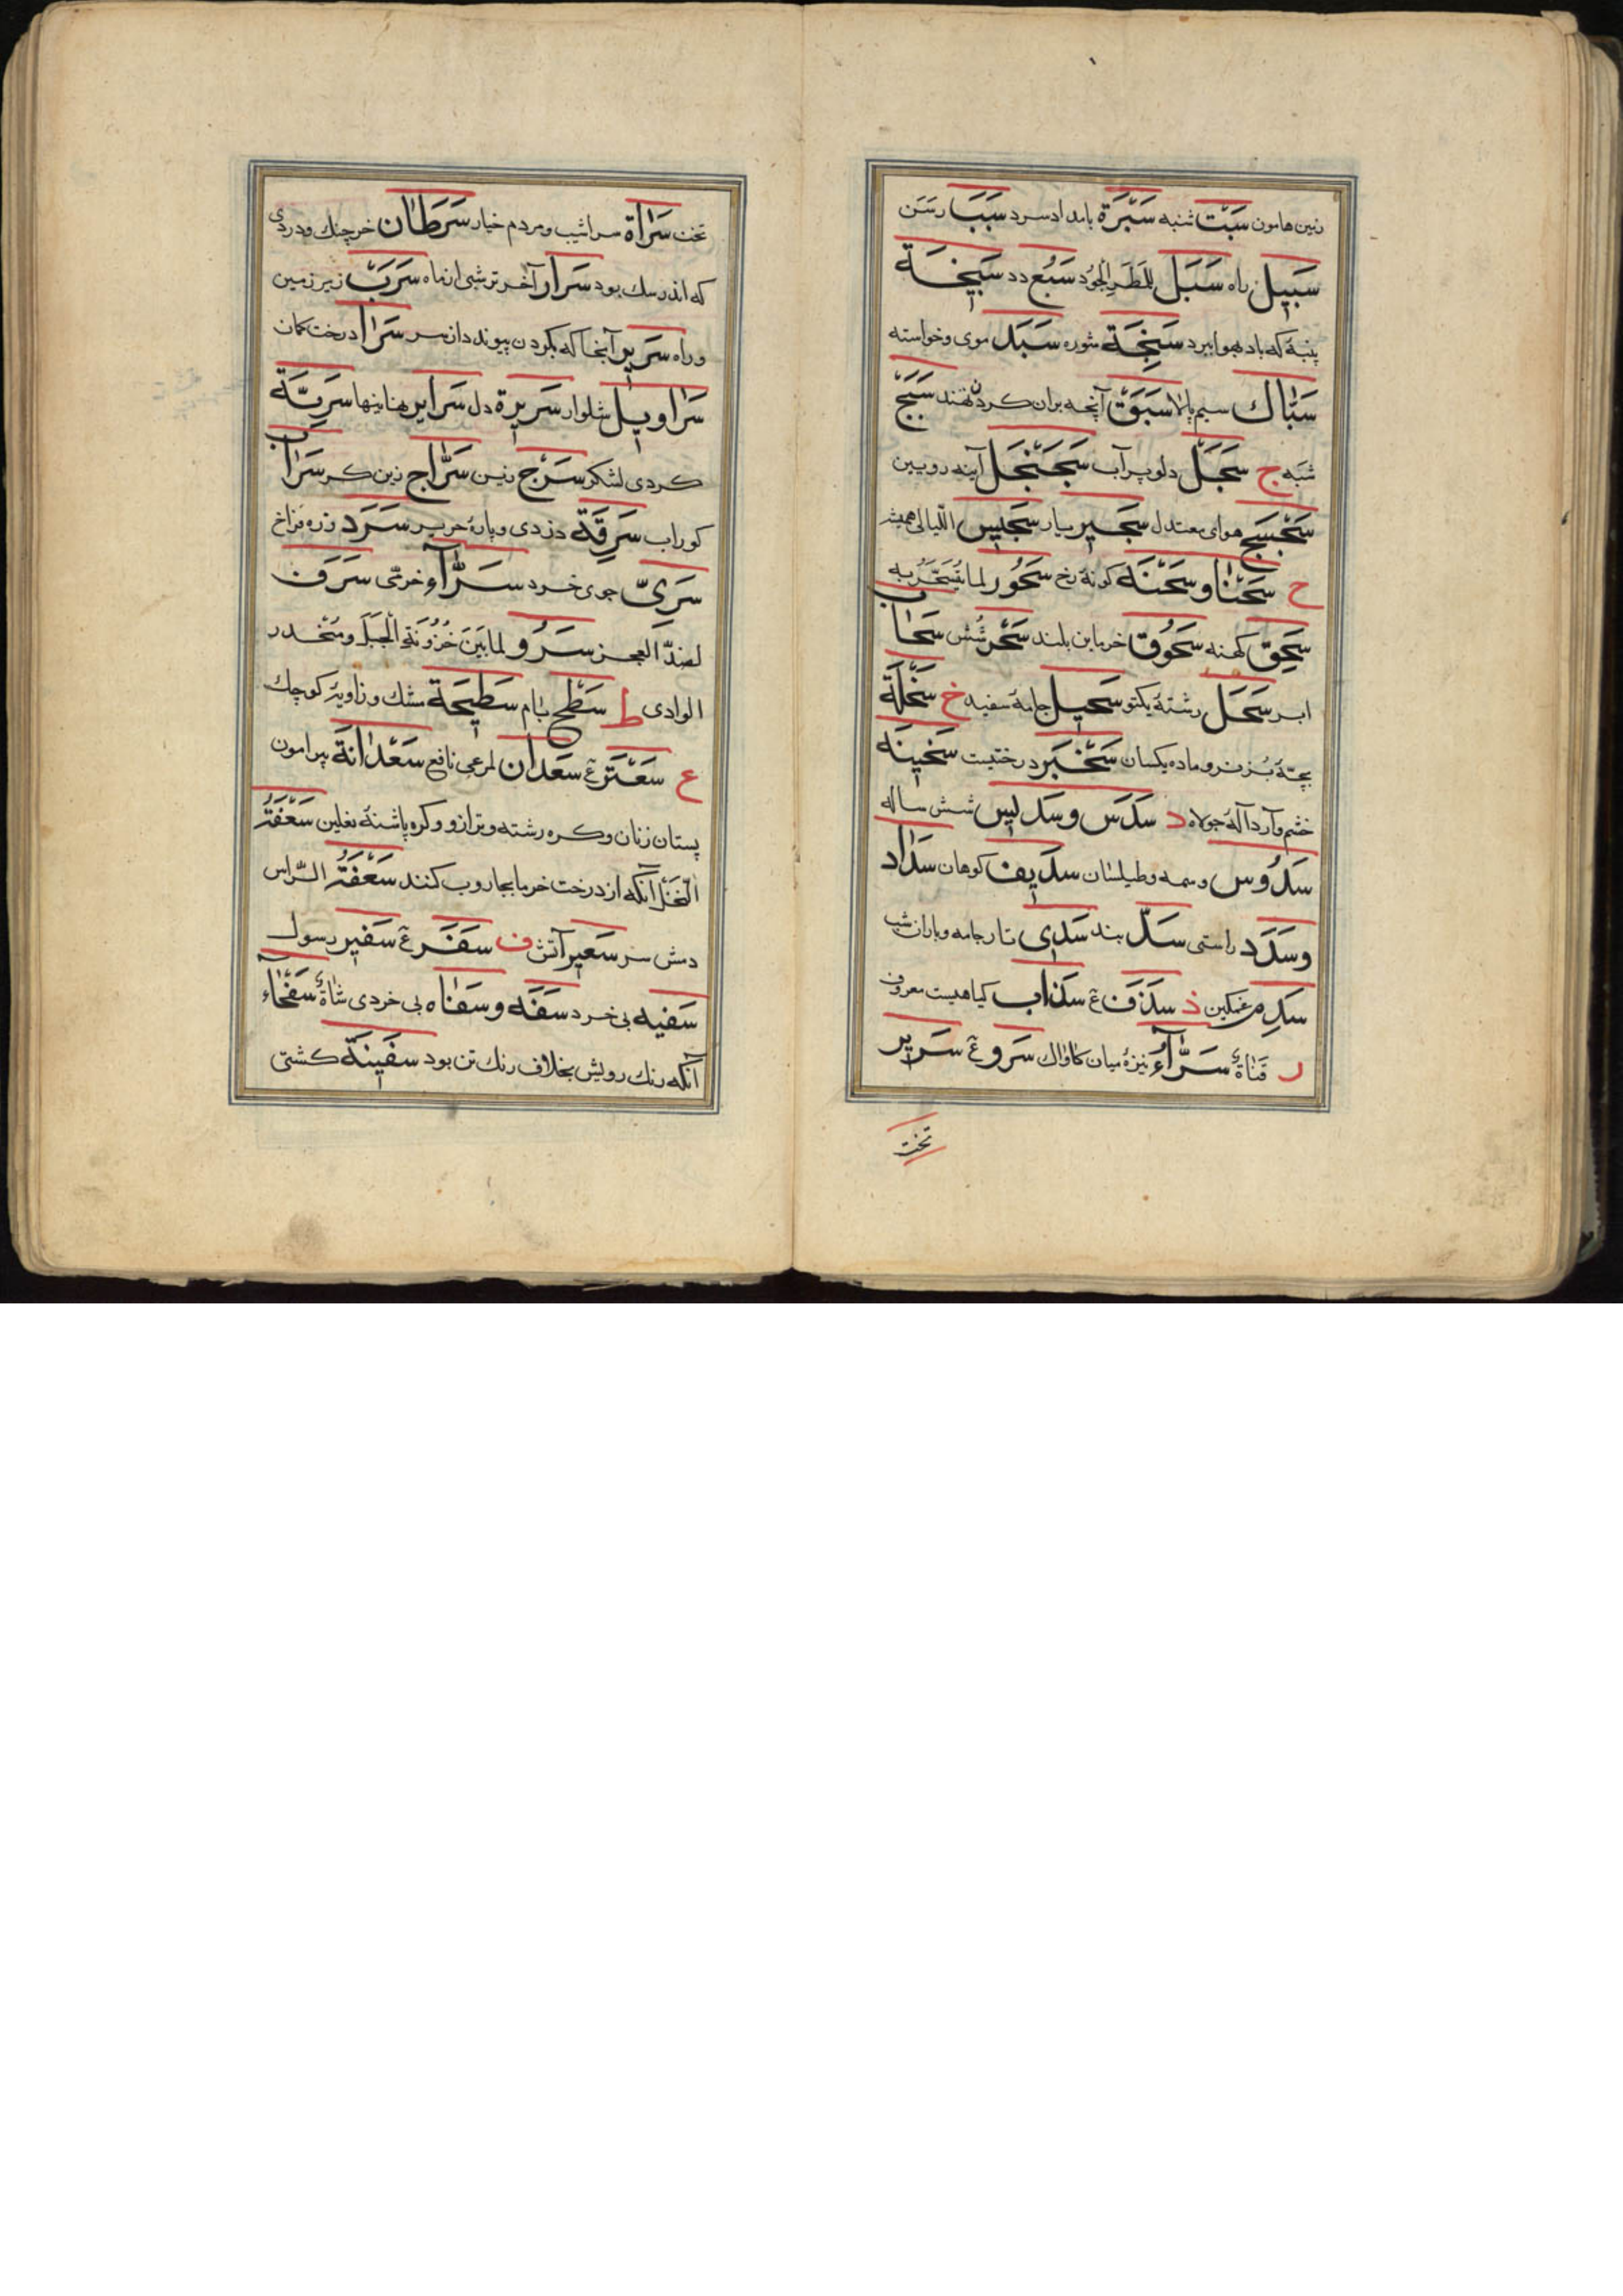 زمین هامون سَبْت شنبه سَبْرَة بامداد سرد سَبَب رسَن
سَبِیل راه سَبَل للمَطَرِ الجُود سَبُع دد سَبِیخَة
پنبهٔ که باد بهوا ببرد سَبِخَة شوره سَبَد موی و خواسته
سَبّاك سیم پالا سَبَق آنچه بران کردن نهند سَبَج
شبَه ج سَجْل دلو پر آب سَجَنْجَل آینه رویین
سَجْسَج هوای معتدل سَجِیر یار سَجِیس اللّیالی همیشه
ح سَحْنا و سَحْنَه کونهٔ رخ سَحُور لما یُتَسَحَّرُ به
سَحِق کهنه سَحُوق خرمابن بلند سَحْر شُش سَحَاب
ابر سَحَل رشتهٔ یکتو سَحِیل جامهٔ سفید خ سَخْلَة
بچهٔ بُز نر و ماده یکسان سَخْبَر درختیست سَخِینَه
خشم و آرد آلهٔ جولاه د سَدَس و سَدِیس شش ساله
سَدُوس وسمه و طیلسان سَدِیف کوهان سَدَاد
وسَدَد راستی سَدّ بند سَدَی تار جامه و باران شب
سَدِم غمکین ذ سَذَف ع سَذَاب کیاهیست معروف
ر قَناةٌ سَرَّآءُ نیزهٔ میان کاواك سَرو ع سَرِیر
تخت
تخت سَرَاة سراشیب و مردم خیار سَرَطَان خرچنك و دردی
که اندر سك بود سَرَار آخر تر شبی از ماه سَرَب زیر زمین
و راه سَرِیر آنجا که بکردن پیوند دارد سر سَرَا درخت کمان
سَرَاوِیل شلوار سَرِیرَة دل سَرَایر نهانیها سَرِیَّة
کردی لشکر سَرْج زین سَرّاج زین کر سَرَاب
کوراب سَرِقَة دزدی و پارهٔ حریر سَرَد زره فراخ
سَرِیّ جوی خرد سَرَّآء خرمی سَرَف
لضدّ العجز سَرْو لما بَیْنَ حُزُونَةِ الْجَبَلِ و مُنْحَدر
الوادی ط سَطْح بام سَطِیحَة مشك و زاویهٔ کوچك
ع سَعْتَر ع سَعْدَان لمرعی نافع سَعْدَانَة پیرامون
پستان زنان و کره رشته و ترازو و کره پاشنهٔ نعلین سَعَفَةُ
النَّخْل آنکه از درخت خرما بجاروب کنند سَعْفَةُ الرّاس
دمش سر سَعِیر آتش ف سَفَر ع سَفِیر رسول
سَفِیه بی خرد سَفَه و سَفَاه بی خردی شاةٌ سَفْعَاء
آنکه رنك رویش بخلاف رنك تن بود سَفِینَة کشتی